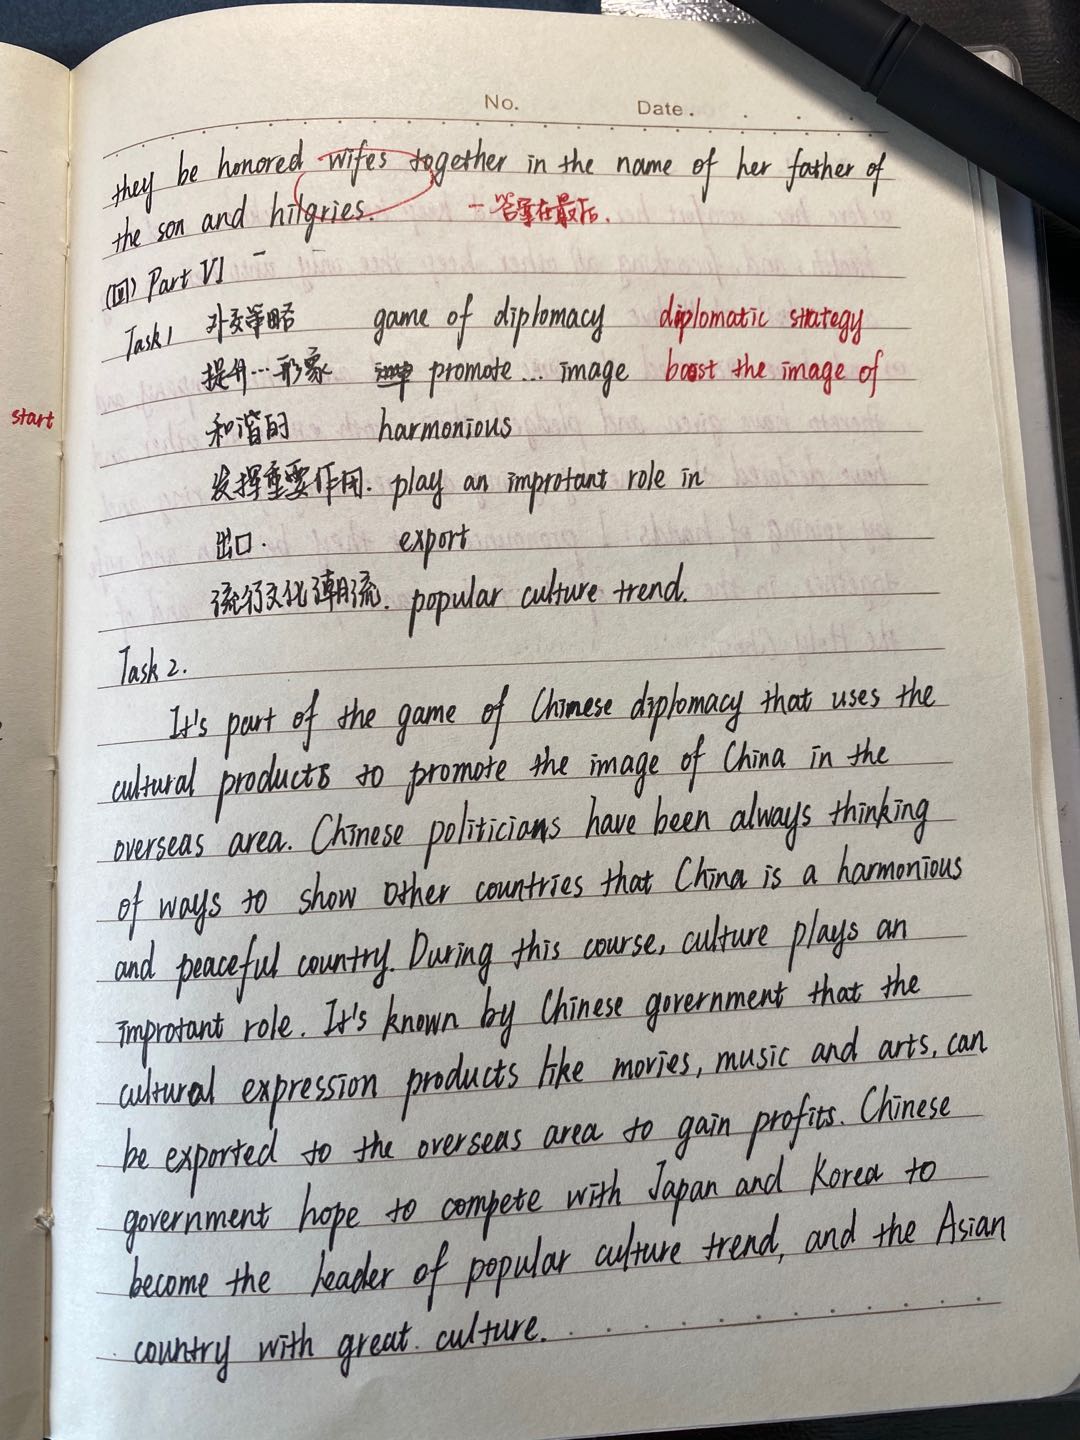 No. Date.
they be honored wifes together in the name of her father of
the son and hilgries. 答案在最后.
(四) Part VI
Task 1 外交策略 game of diplomacy diplomatic strategy
提升…形象 promote... image boost the image of
start
和谐的 harmonious
发挥重要作用. play an improtant role in
出口. export
流行文化潮流. popular culture trend.
Task 2.
It's part of the game of Chinese diplomacy that uses the
cultural products to promote the image of China in the
overseas area. Chinese politicians have been always thinking
of ways to show other countries that China is a harmonious
and peaceful country. During this course, culture plays an
improtant role. It's known by Chinese government that the
cultural expression products like movies, music and arts, can
be exported to the overseas area to gain profits. Chinese
government hope to compete with Japan and Korea to
become the leader of popular culture trend, and the Asian
country with great culture.